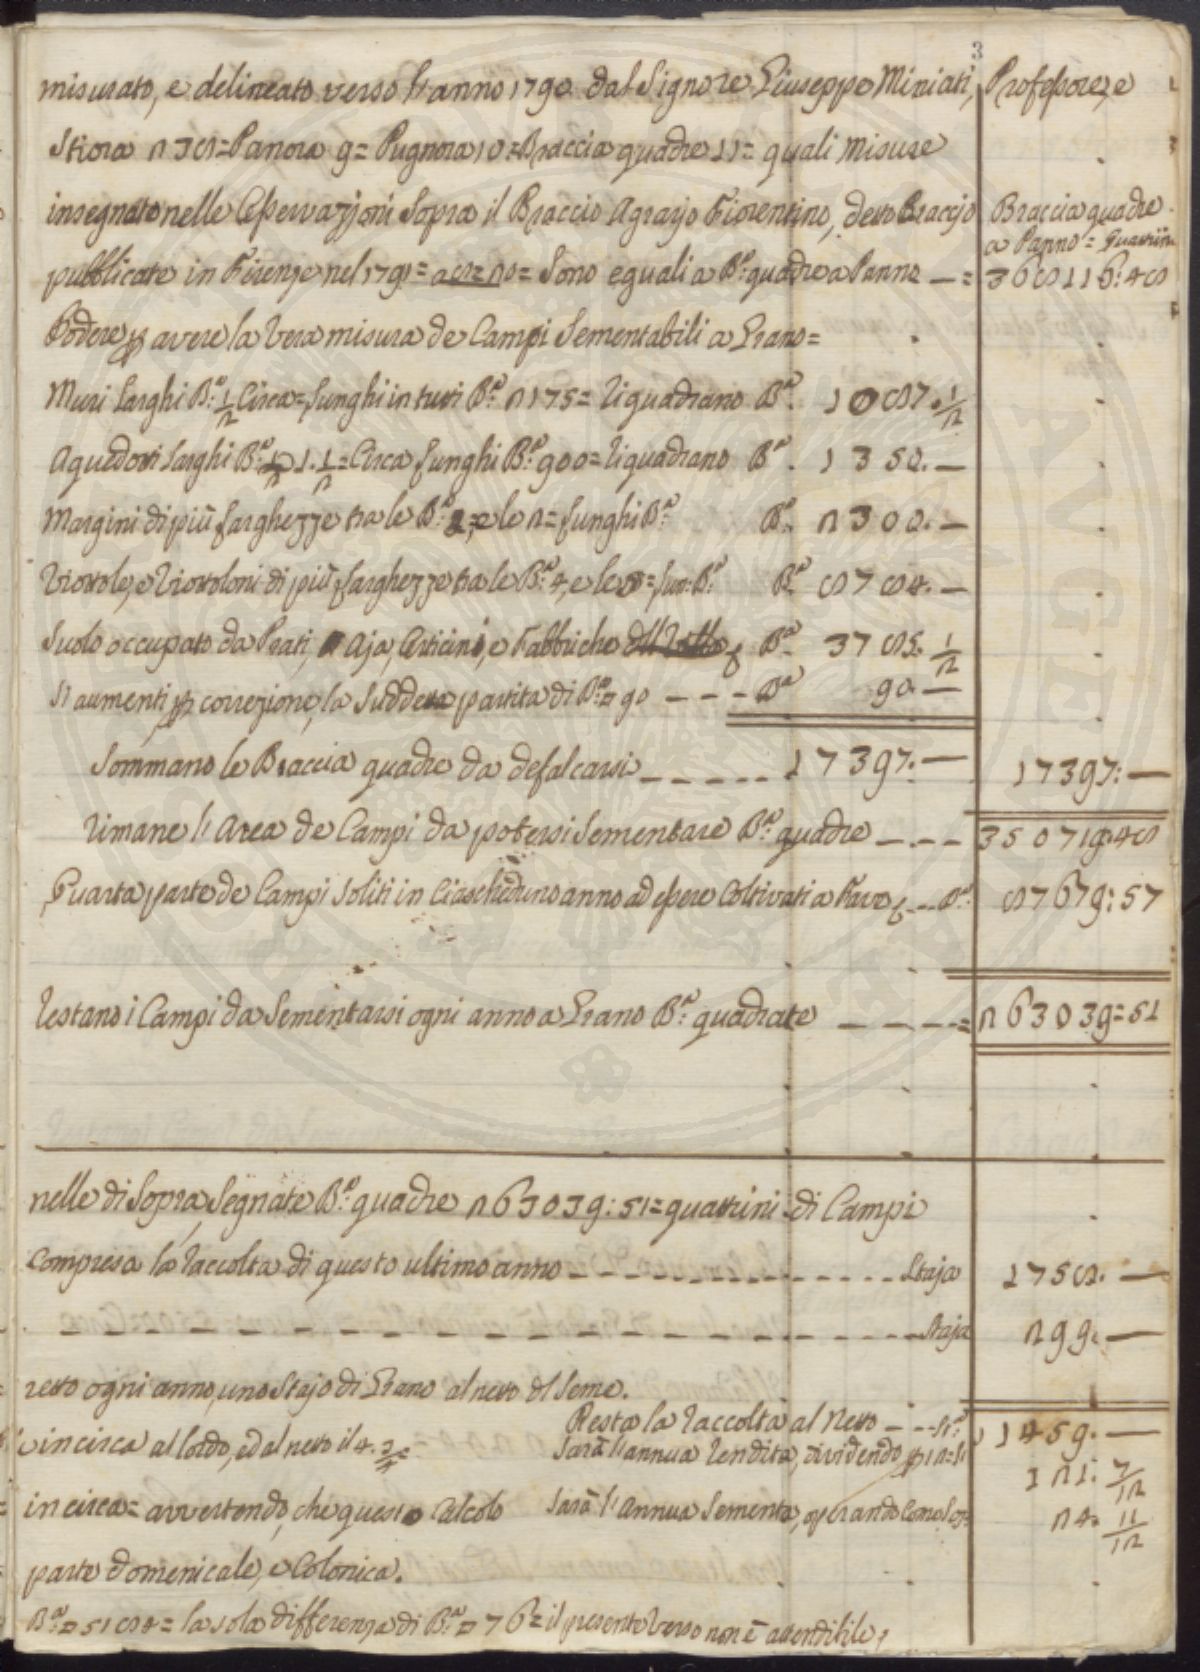 3
misurato, e delineato verso l'anno 1790 dal Signore Giuseppe Miniati, Professore, e
Stiora 238= Panora 9= Pugnora 10= Braccia quadre 11= quali misure
insegnato nelle Osservazioni Sopra il Braccio Agrario Fiorentino, detto Braccio Braccia quadre
a Panno = Quattrini
pubblicate in Firenze nel 1791= = Sono eguali a Bª: quadre a Panno — = 368116:48
Podere, per avere la vera misura de Campi Sementabili a Grano=
Muri larghi Bª: 1/2 Circa= lunghi in tutti Bª: 2175= riquadrano Bª. 1087. 1/2
Aquedotti larghi Bª: 1. 1/2= Circa lunghi Bª: 900= riquadrano Bª. 1350. —
Margini di più larghezze tra le Bª: e le 2= lunghi Bª: Bª: 2300. —
Viottole, e Viottoloni di più larghezze tra le Bª: 4, e le 8= lun: Bª: Bª 8784. —
Suolo occupato da Prati, Aja, Orticini, e Fabbriche Bª 3785. 1/2
Si aumenti per correzione, la Suddetta partita di Bª = 90 – – – Bª 90 —
Sommano le Braccia quadre da defalcarsi – – – – – 17397. — 17397: —
Rimane l'Area de Campi da potersi Sementare Bª: quadre – – – – 350719:48
Quarta parte de Campi Soliti in Ciascheduno anno ad essere Coltivati a Fave – – Bª: 87679:57
Restano i Campi da Sementarsi ogni anno a Grano Bª: quadrate – – – – = 263039=51
nelle di Sopra Segnate Bª: quadre 263039:51= quattrini di Campi
Compresa la raccolta di questo ultimo anno – – – – – – – – – – – – Staja 1758. —
– – – – – – – – – – – – – – – – – – – – Staja 299. —
retto ogni anno, uno Stajo di Grano al netto del Seme.
Resta la raccolta al Netto – – – Stª 1459. —
vincirca al lordo, ed al netto il 4. Sarà l'annua rendita, dividendo per 12= St 121: 7/12
in circa= avvertendo, che questo Calcolo Sarà l'Annua Sementa, operando Come Sop. 24. 11/12
parte domenicale, e Colonica.
Bª = 5184= la sola differenza di Bª = 76= il presente Verso non è attendibile,